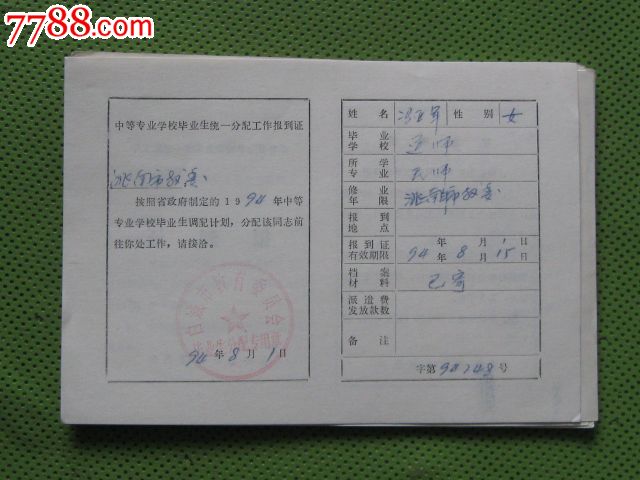 7788.com
中等专业学校毕业生统一分配工作报到证
洮南市教委
按照省政府制定的1994年中等
专业学校毕业生调配计划，分配该同志前
往你处工作，请接洽。
白城市教育委员会
94年8月1日
姓名 性别 女
毕业学校
所学专业
修业年限 洮南市教委
报到地点
报到证有效期限 94年8月1日
年8月15日
档案材料 已寄
派遣费发放款数
备注
字第94248号